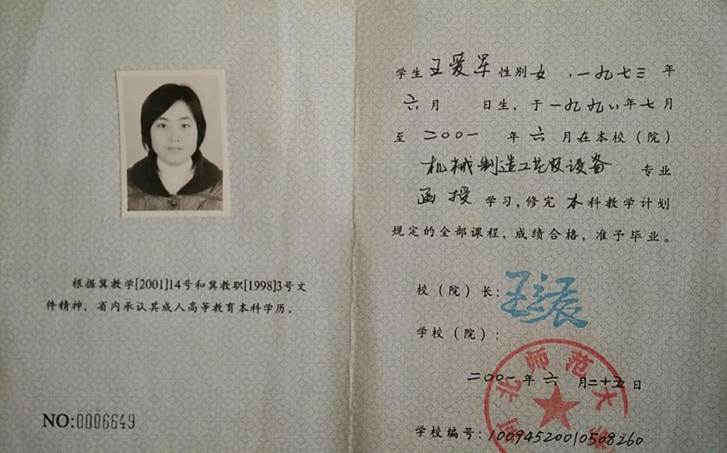 根据冀教学[2001]14号和冀教职[1998]3号文
件精神，省内承认其成人高等教育本科学历。
NO:0006649
学生王爱军性别女，一九七三年
六月 日生，于一九九八年七月
至二〇〇一年六月在本校（院）
机械制造工艺及设备 专业
函授学习，修完本科教学计划
规定的全部课程，成绩合格，准予毕业。
校（院）长：
学校（院）：
二〇〇一年六月二十五日
北师范大
学校编号：10094520010508260